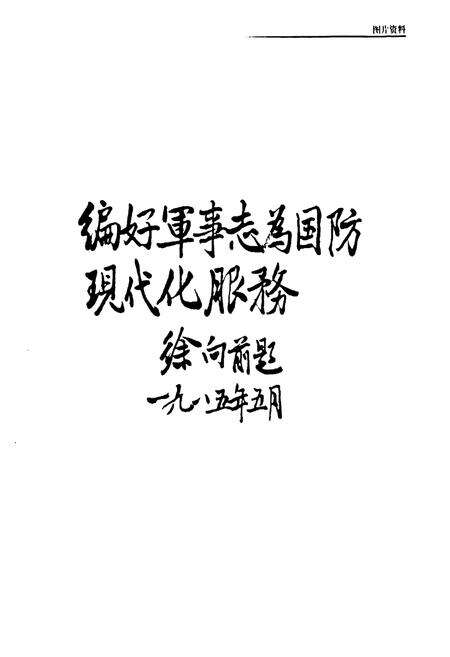 图片资料
编好軍事志為国防
現代化服務
徐向前题
一九八五年五月